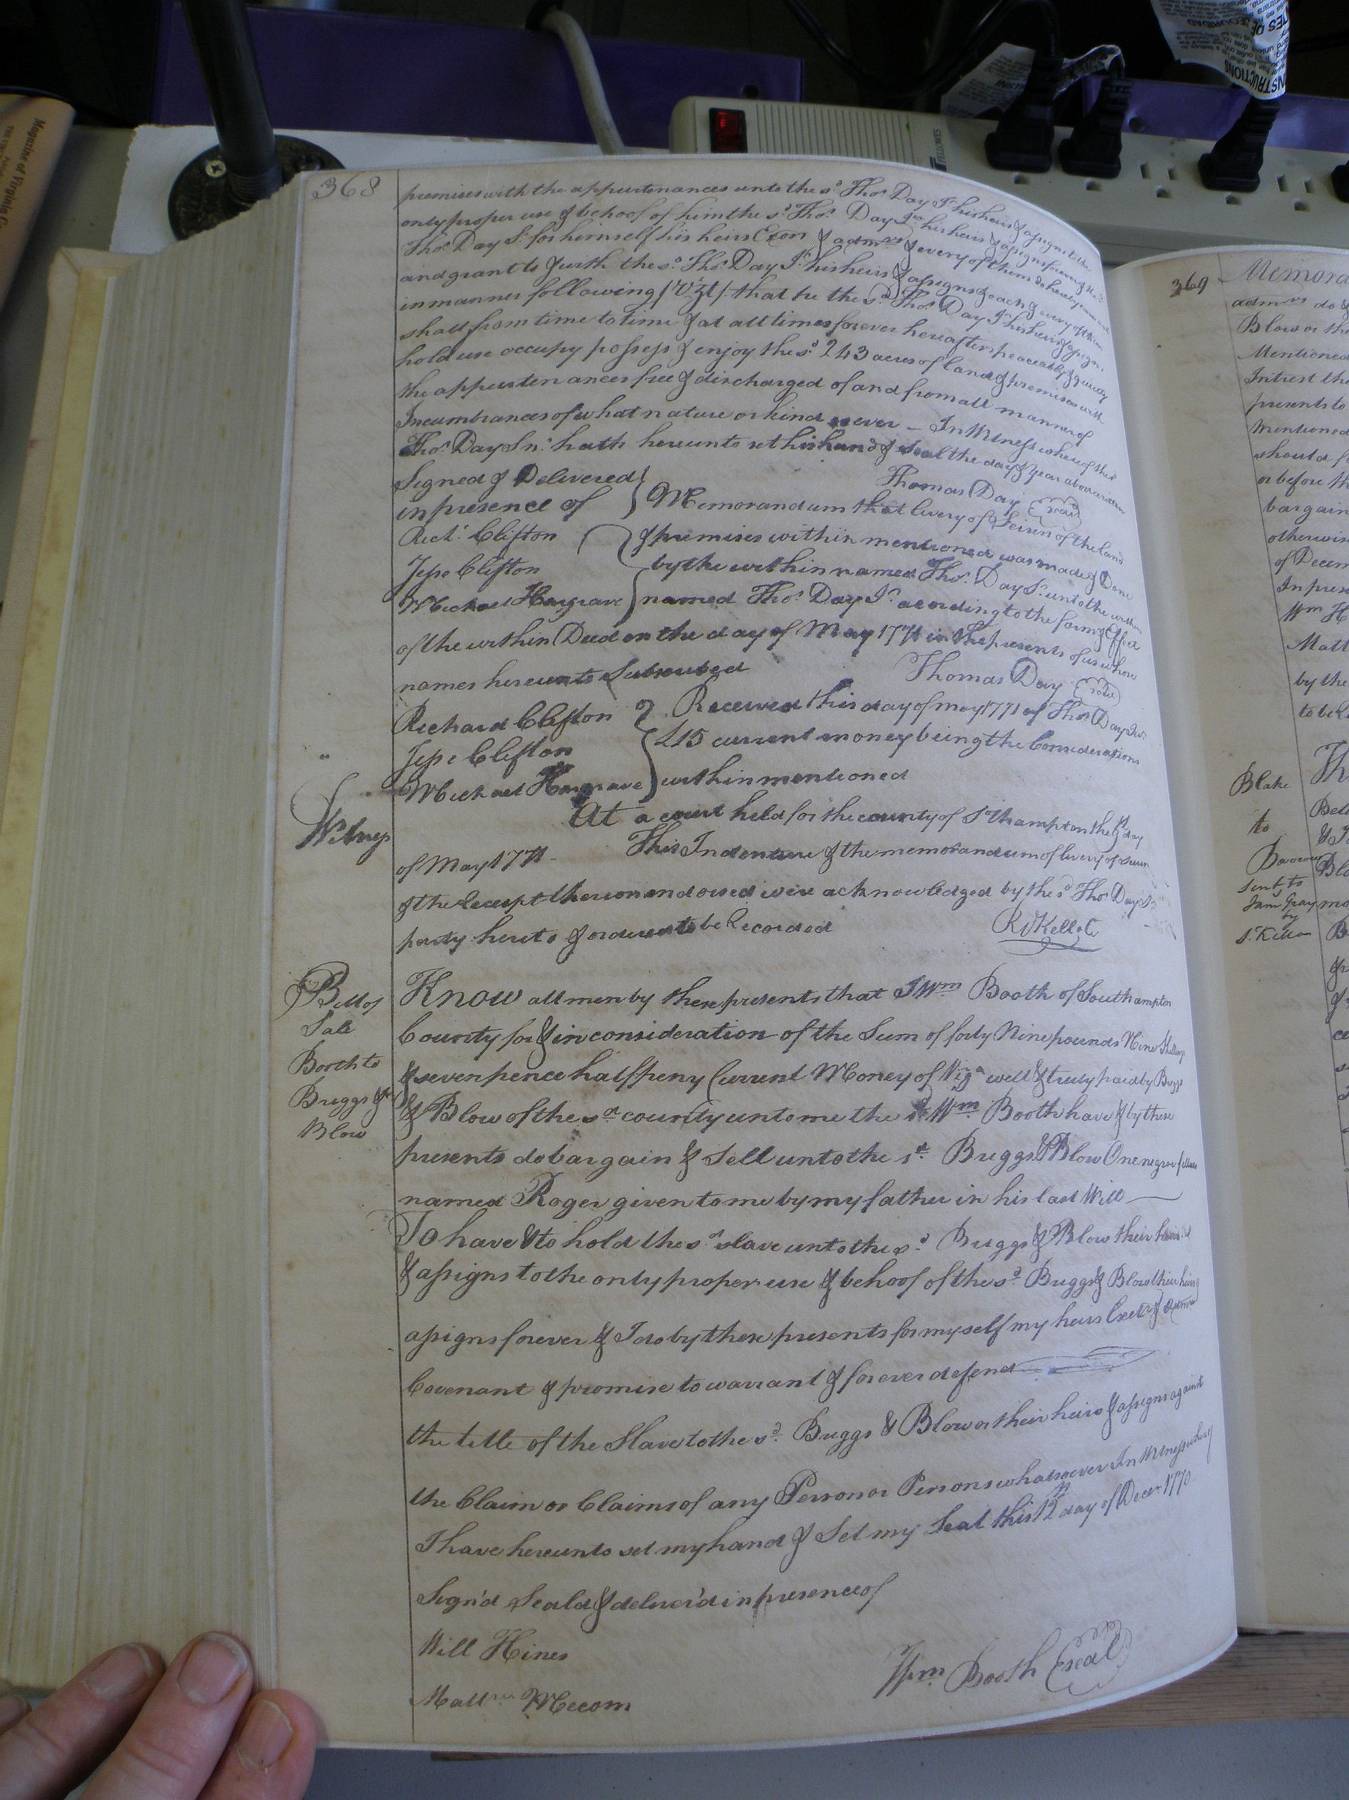 368
premises with the appurtenances unto the sd Thos Day Jr his heirs & assigns to the
only proper use & behoof of him the sd Thos Day Jr his heirs & assigns forever & the sd
Thos Day Sr for himself his heirs Exors & admrs & every of them do hereby covenant
and grant to & with the sd Thos Day Jr his heirs & assigns & each & every of them
in manner following (Vizt) that he the sd Thos Day Jr his heirs & assigns
shall from time to time & at all times forever hereafter peaceably & quietly
hold use occupy possess & enjoy the sd 243 acres of land & premises with
the appurtenances free & discharged of and from all manner of
Incumbrances of what nature or kind soever — In Witness whereof the sd
Thos Day Snr hath hereunto set his hand & seal the day & year above written
Signed & Delivered Thomas Day (seal)
in presence of Memorandum that livery of Seisen of the land
Richd Clifton & premises within mentioned was made & Done
Jesse Clifton by the within named Thos Day Sr unto the within
Michael Hargrave named Thos Day Jr acording to the form & Effect
of the within Deed on the day of May 1771 in the presents of us whose
names hereunto Subscribed Thomas Day (seal)
Richard Clifton Received this day of may 1771 of Thos Day Jur
Jesse Clifton £15 current money being the Consideration
Michael Hargrave within mentioned
Witness
At a court held for the county of Sthampton the day
of May 1771 - This Indenture & the memorandum of livery of Seisen
& the Receipt thereon endorsed were acknowledged by the sd Thos Day Sr
party hereto & ordered to be Recorded
Rd Kello C
Bill of
Sale
Booth to
Briggs &
Blow
Know all men by these presents that I Wm Booth of Southampton
County for & in consideration of the Sum of forty Nine pounds Nine Shillings
& seven pence halfpeny Current Money of Viga well & truly paid by Briggs
& Blow of the sd county unto me the sd Wm Booth have & by these
presents do bargain & Sell unto the sd Briggs & Blow One negroe fellow
named Roger given to me by my father in his last Will
To have & to hold the sd slave unto the sd Briggs & Blow their heirs
& assigns to the only proper use & behoof of the sd Briggs & Blow their heirs
assigns forever & I do by these presents for myself my heirs Exetrs &
Covenant & promise to warrant & forever defend
the title of the Slave to the sd Briggs & Blow or their heirs & assigns against
the Claim or Claims of any Person or Persons whatsoever In Witness whereof
I have hereunto set my hand & Set my Seal this 12th day of Decer 1770
Sign'd Seald & deliver'd in presence of
Will Hines
Wm Booth (seal)
Mattw Mecom
369
Memora
admrs do
Blow or the
Mentioned
Intrest the
presents to
Mentioned
should
or before th
bargain
otherwis
of Decem
In presen
Wm H
Matt
by the
to be R
Blake
to
Barrow
Sent to
Jam Gray
by
S. Kello
INSTRUCTIONS
FELLOWES
Magazine of Virginia